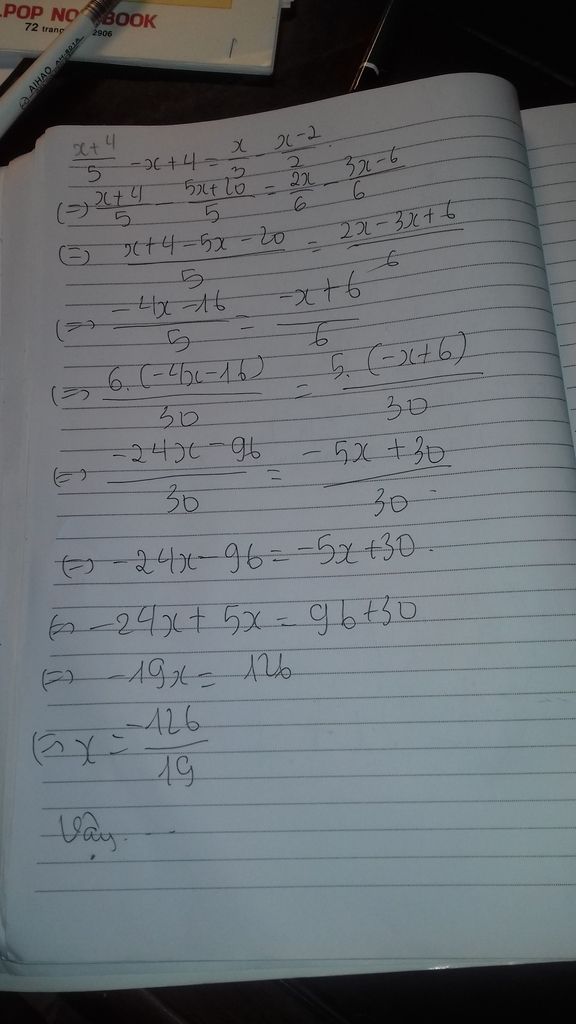 POP NOTEBOOK
72 trang 2906
AIHAO
x+4/5 - x + 4 = x/3 - x-2/2
(=) x+4/5 - 5x+20/5 = 2x/6 - 3x-6/6
(=) x+4-5x-20/5 = 2x-3x+6/6
(=) -4x-16/5 = -x+6/6
(=) 6.(-4x-16)/30 = 5.(-x+6)/30
(=) -24x-96/30 = -5x+30/30
(=) -24x-96 = -5x+30.
(=) -24x+5x = 96+30
(=) -19x = 126
(=) x = -126/19
Vậy...